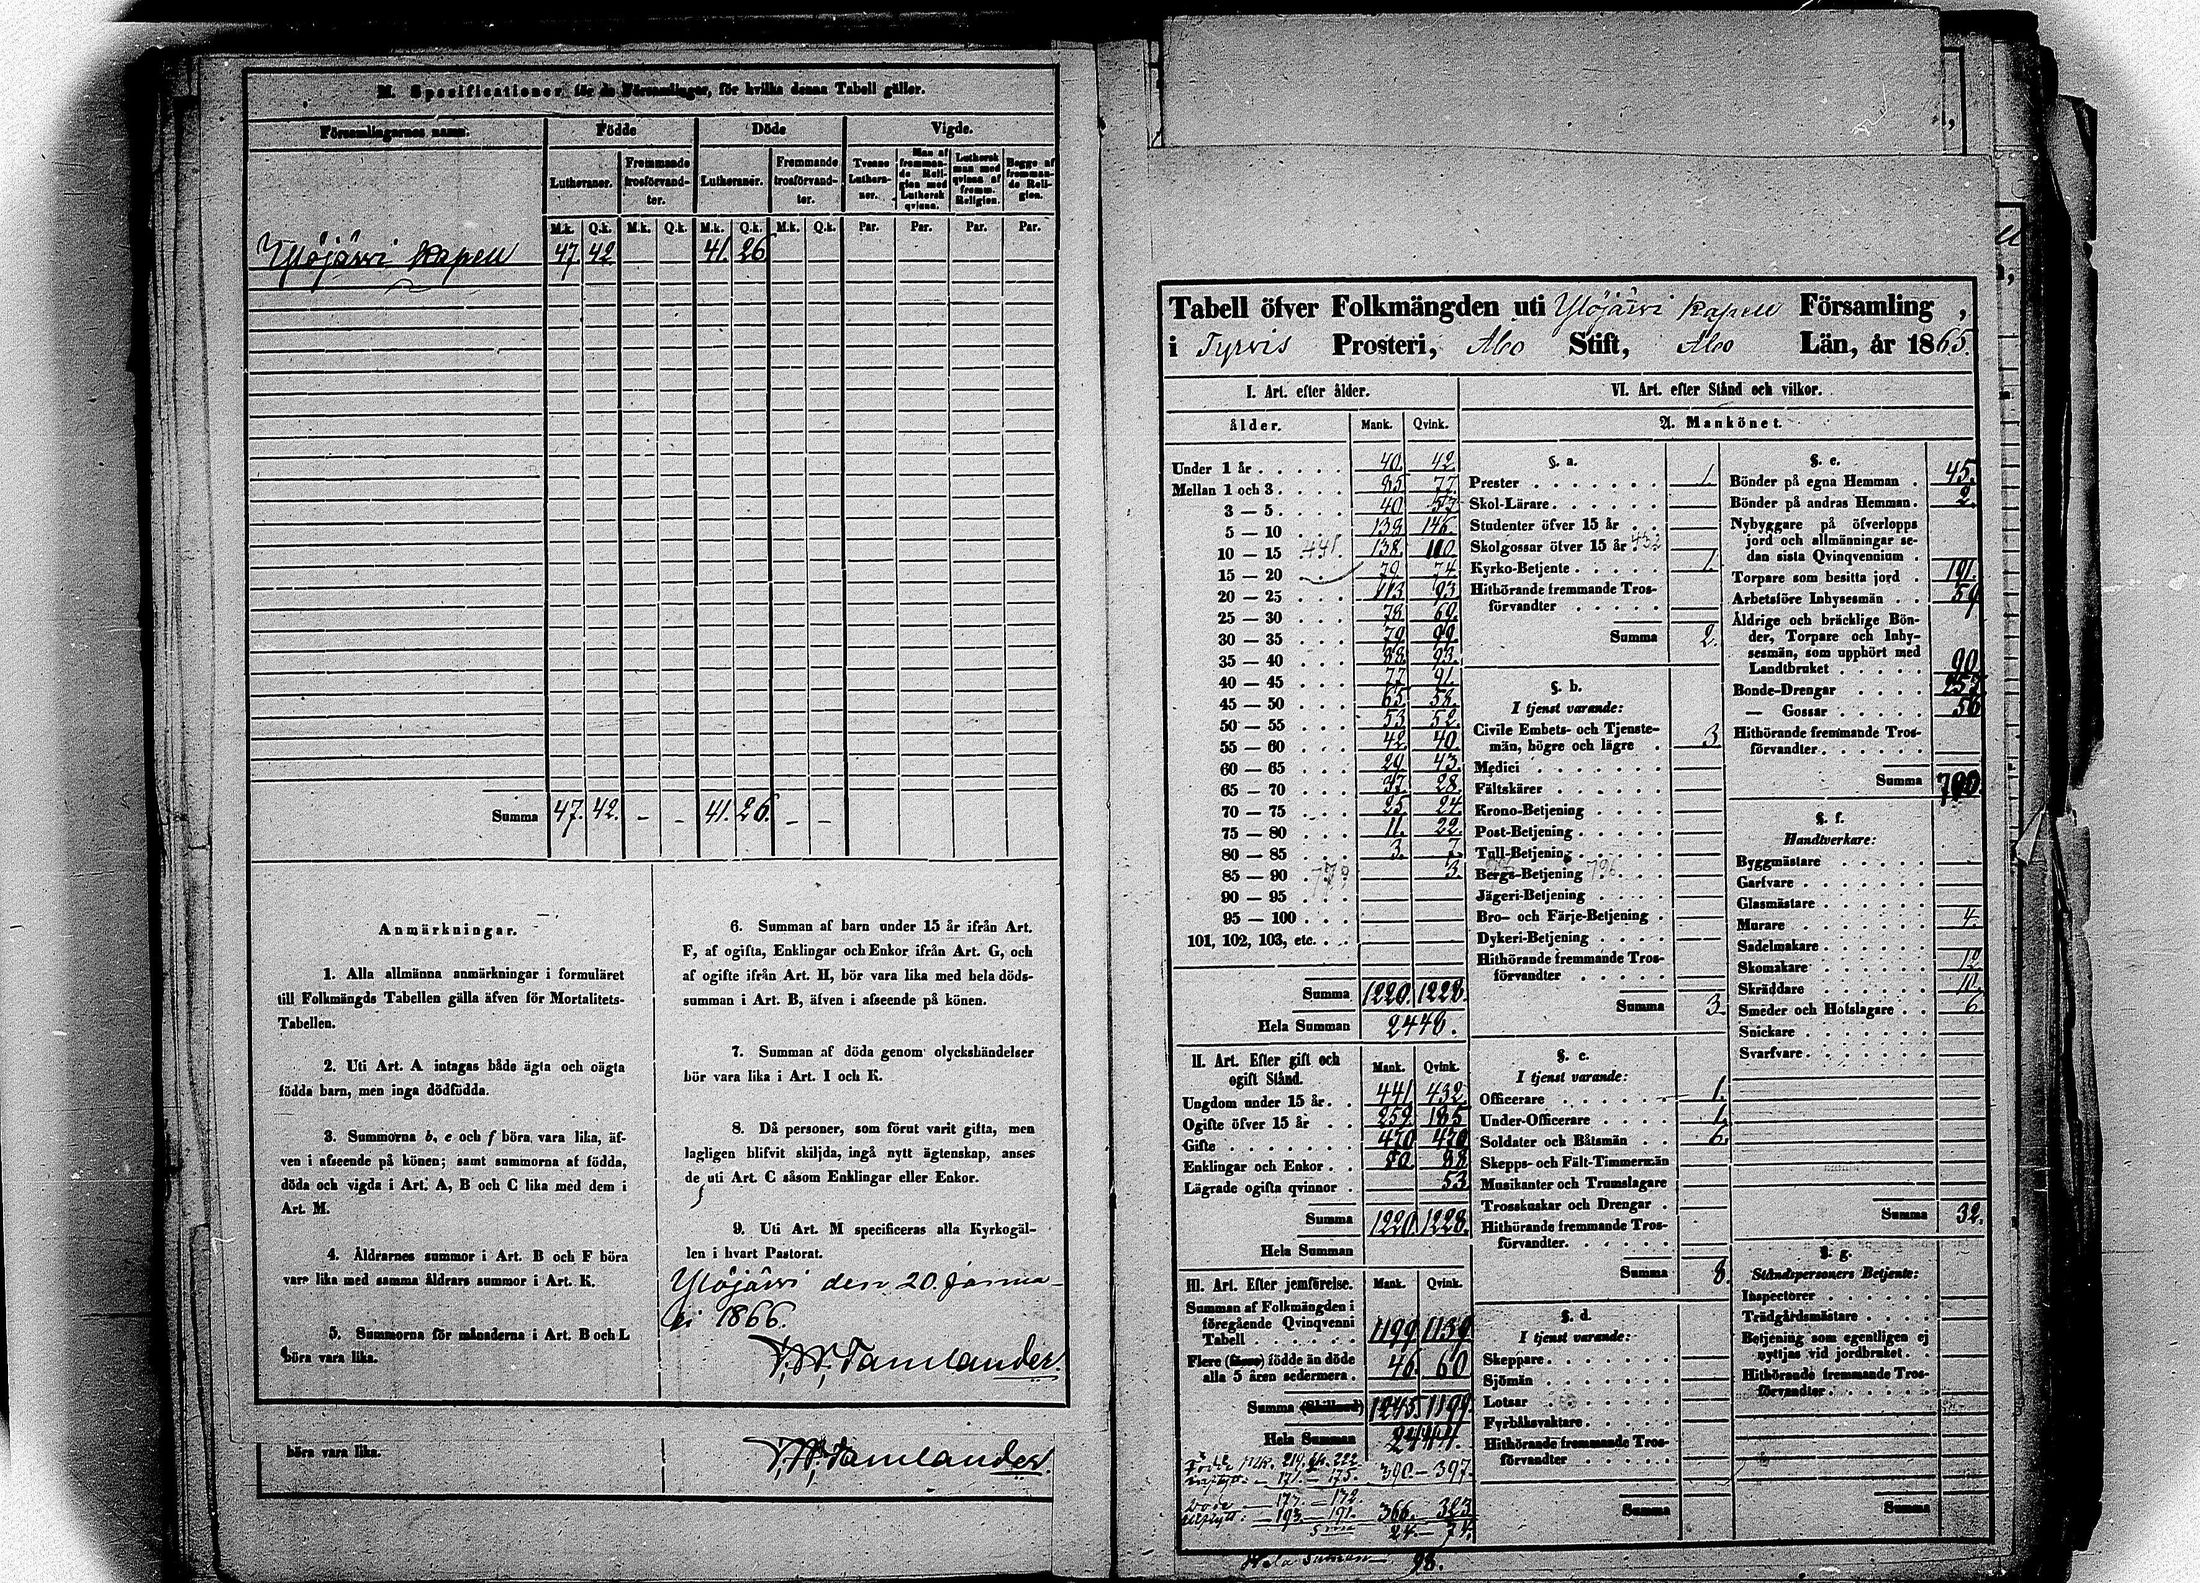 M. Specificationer för de Församlingar, för hvilka denna Tabell gäller.
Församlingarnes namn. Födde Döde Vigde.
Lutheraner. Fremmande trosförvandter. Lutheraner. Fremmande trosförvandter. Tvenne Lutheraner. Man af fremmande Religion med Luthersk qvinna. Luthersk man med qvinna af fremm. Religion. Begge af fremmande Religion.
M.k. Q.k. M.k. Q.k. M.k. Q.k. M.k. Q.k. Par. Par. Par. Par.
Ylöjärvi Kapell 47. 42. 41. 26
Summa 47. 42. - - 41. 26. - -
Anmärkningar.
1. Alla allmänna anmärkningar i formuläret
till Folkmängds Tabellen gälla äfven för Mortalitets-
Tabellen.
2. Uti Art. A intagas både ägta och oägta
födda barn, men inga dödfödda.
3. Summorna b, e och f böra vara lika, äf-
ven i afseende på könen; samt summorna af födda,
döda och vigda i Art. A, B och C lika med dem i
Art. M.
4. Åldrarnes summor i Art. B och F böra
vara lika med samma åldrars summor i Art. K.
5. Summorna för månaderna i Art. B och L
böra vara lika.
6. Summan af barn under 15 år ifrån Art.
F, af ogifta, Enklingar och Enkor ifrån Art. G, och
af ogifte ifrån Art. H, bör vara lika med hela döds-
summan i Art. B, äfven i afseende på könen.
7. Summan af döda genom olyckshändelser
bör vara lika i Art. I och K.
8. Då personer, som förut varit gifta, men
lagligen blifvit skiljda, ingå nytt ägtenskap, anses
de uti Art. C såsom Enklingar eller Enkor.
9. Uti Art. M specificeras alla Kyrkogäl-
len i hvart Pastorat.
Ylöjärvi den 20. Janua-
ri 1866.
F. W. Tamlander.
böra vara lika.
F. W. Tamlander.
Tabell öfver Folkmängden uti Ylöjärvi Kapell Församling,
i Tyrvis Prosteri, Åbo Stift, Åbo Län, år 1865.
I. Art. efter ålder.
ålder. Mank. Qvink.
Under 1 år 40. 42.
Mellan 1 och 3. 85. 77.
3 — 5. 40. 57
5 — 10 138. 146.
10 — 15 441. 138. 110
15 — 20 79. 74.
20 — 25 113. 93.
25 — 30 78. 69.
30 — 35 79. 99.
35 — 40 88. 93.
40 — 45 77. 91.
45 — 50 65. 58.
50 — 55 53. 52.
55 — 60 42. 40.
60 — 65 29. 43.
65 — 70 37. 28.
70 — 75 25. 24.
75 — 80 11. 22.
80 — 85 3. 7.
85 — 90 779 3
90 — 95
95 — 100
101, 102, 103, etc.
Summa 1220. 1228.
Hela Summan 2448.
II. Art. Efter gift och
ogift Stånd. Mank. Qvink.
Ungdom under 15 år. 441. 432.
Ogifte öfver 15 år 259. 185
Gifte 470 470
Enklingar och Enkor 50. 88
Lägrade ogifta qvinnor 53.
Summa 1220. 1228.
Hela Summan
III. Art. Efter jemförelse. Mank. Qvink.
Summan af Folkmängden i
föregående Qvinqvenni
Tabell 1199. 1139
Flere (färre) födde än döde
alla 5 åren sedermera. 46. 60
Summa (Skillnad) 1245. 1199.
Hela Summan 2444.
Födde Mk. 219. Qk. 222.
171. — 175. 390. — 397.
Döde — 173. — 172.
utflytt: — 193. — 191. 366. — 323
24. — 74.
Hela summan 98.
VI. Art. efter Stånd och vilkor.
A. Mankönet.
§. a.
Prester 1.
Skol-Lärare
Studenter öfver 15 år
Skolgossar öfver 15 år 432
Kyrko-Betjente 1.
Hithörande fremmande Tros-
förvandter
Summa 2.
§. b.
I tjenst varande:
Civile Embets- och Tjenste-
män, högre och lägre 3.
Medici
Fältskärer
Krono-Betjening
Post-Betjening
Tull-Betjening
Bergs-Betjening 796.
Jägeri-Betjening
Bro- och Färje-Betjening
Dykeri-Betjening
Hithörande fremmande Tros-
förvandter
Summa 3.
§. c.
I tjenst varande:
Officerare 1.
Under-Officerare 1.
Soldater och Båtsmän 6.
Skepps- och Fält-Timmermän
Musikanter och Trumslagare
Trosskuskar och Drengar
Hithörande fremmande Tros-
förvandter.
Summa 8.
§. d.
I tjenst varande:
Skeppare
Sjömän
Lotsar
Fyrbåksvaktare
Hithörande fremmande Tros-
förvandter
Summa
§. e.
Bönder på egna Hemman 45.
Bönder på andras Hemman. 2.
Nybyggare på öfverlopps
jord och allmänningar se-
dan sista Qvinqvennium
Torpare som besitta jord 191.
Arbetsföre Inhysesmän 59
Åldrige och bräcklige Bön-
der, Torpare och Inhy-
sesmän, som upphört med
Landtbruket 90.
Bonde-Drengar 257.
— Gossar 56
Hithörande fremmande Tros-
förvandter
Summa 700.
§. f.
Handtverkare:
Byggmästare
Garfvare
Glasmästare
Murare 4.
Sadelmakare
Skomakare 12.
Skräddare 10.
Smeder och Hofslagare 6.
Snickare
Svarfvare
Summa 32.
§. g.
Ståndspersoners Betjente:
Inspectorer
Trädgårdsmästare
Betjening som egentligen ej
nyttjas vid jordbruket.
Hithörande fremmande Tros-
förvandter
Summa